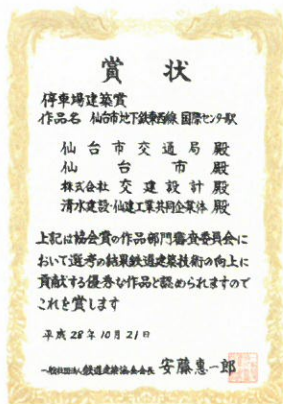 賞状
停車場建築賞
作品名 仙台市地下鉄東西線 国際センター駅
仙台市交通局 殿
仙台市 殿
株式会社 交建設計 殿
清水建設・仙建工業共同企業体 殿
上記は協会賞の作品部門審査委員会に
おいて選考の結果鉄道建築技術の向上に
貢献する優秀な作品と認められますので
これを賞します
平成28年10月21日
一般社団法人 鉄道建築協会会長 安藤恵一郎